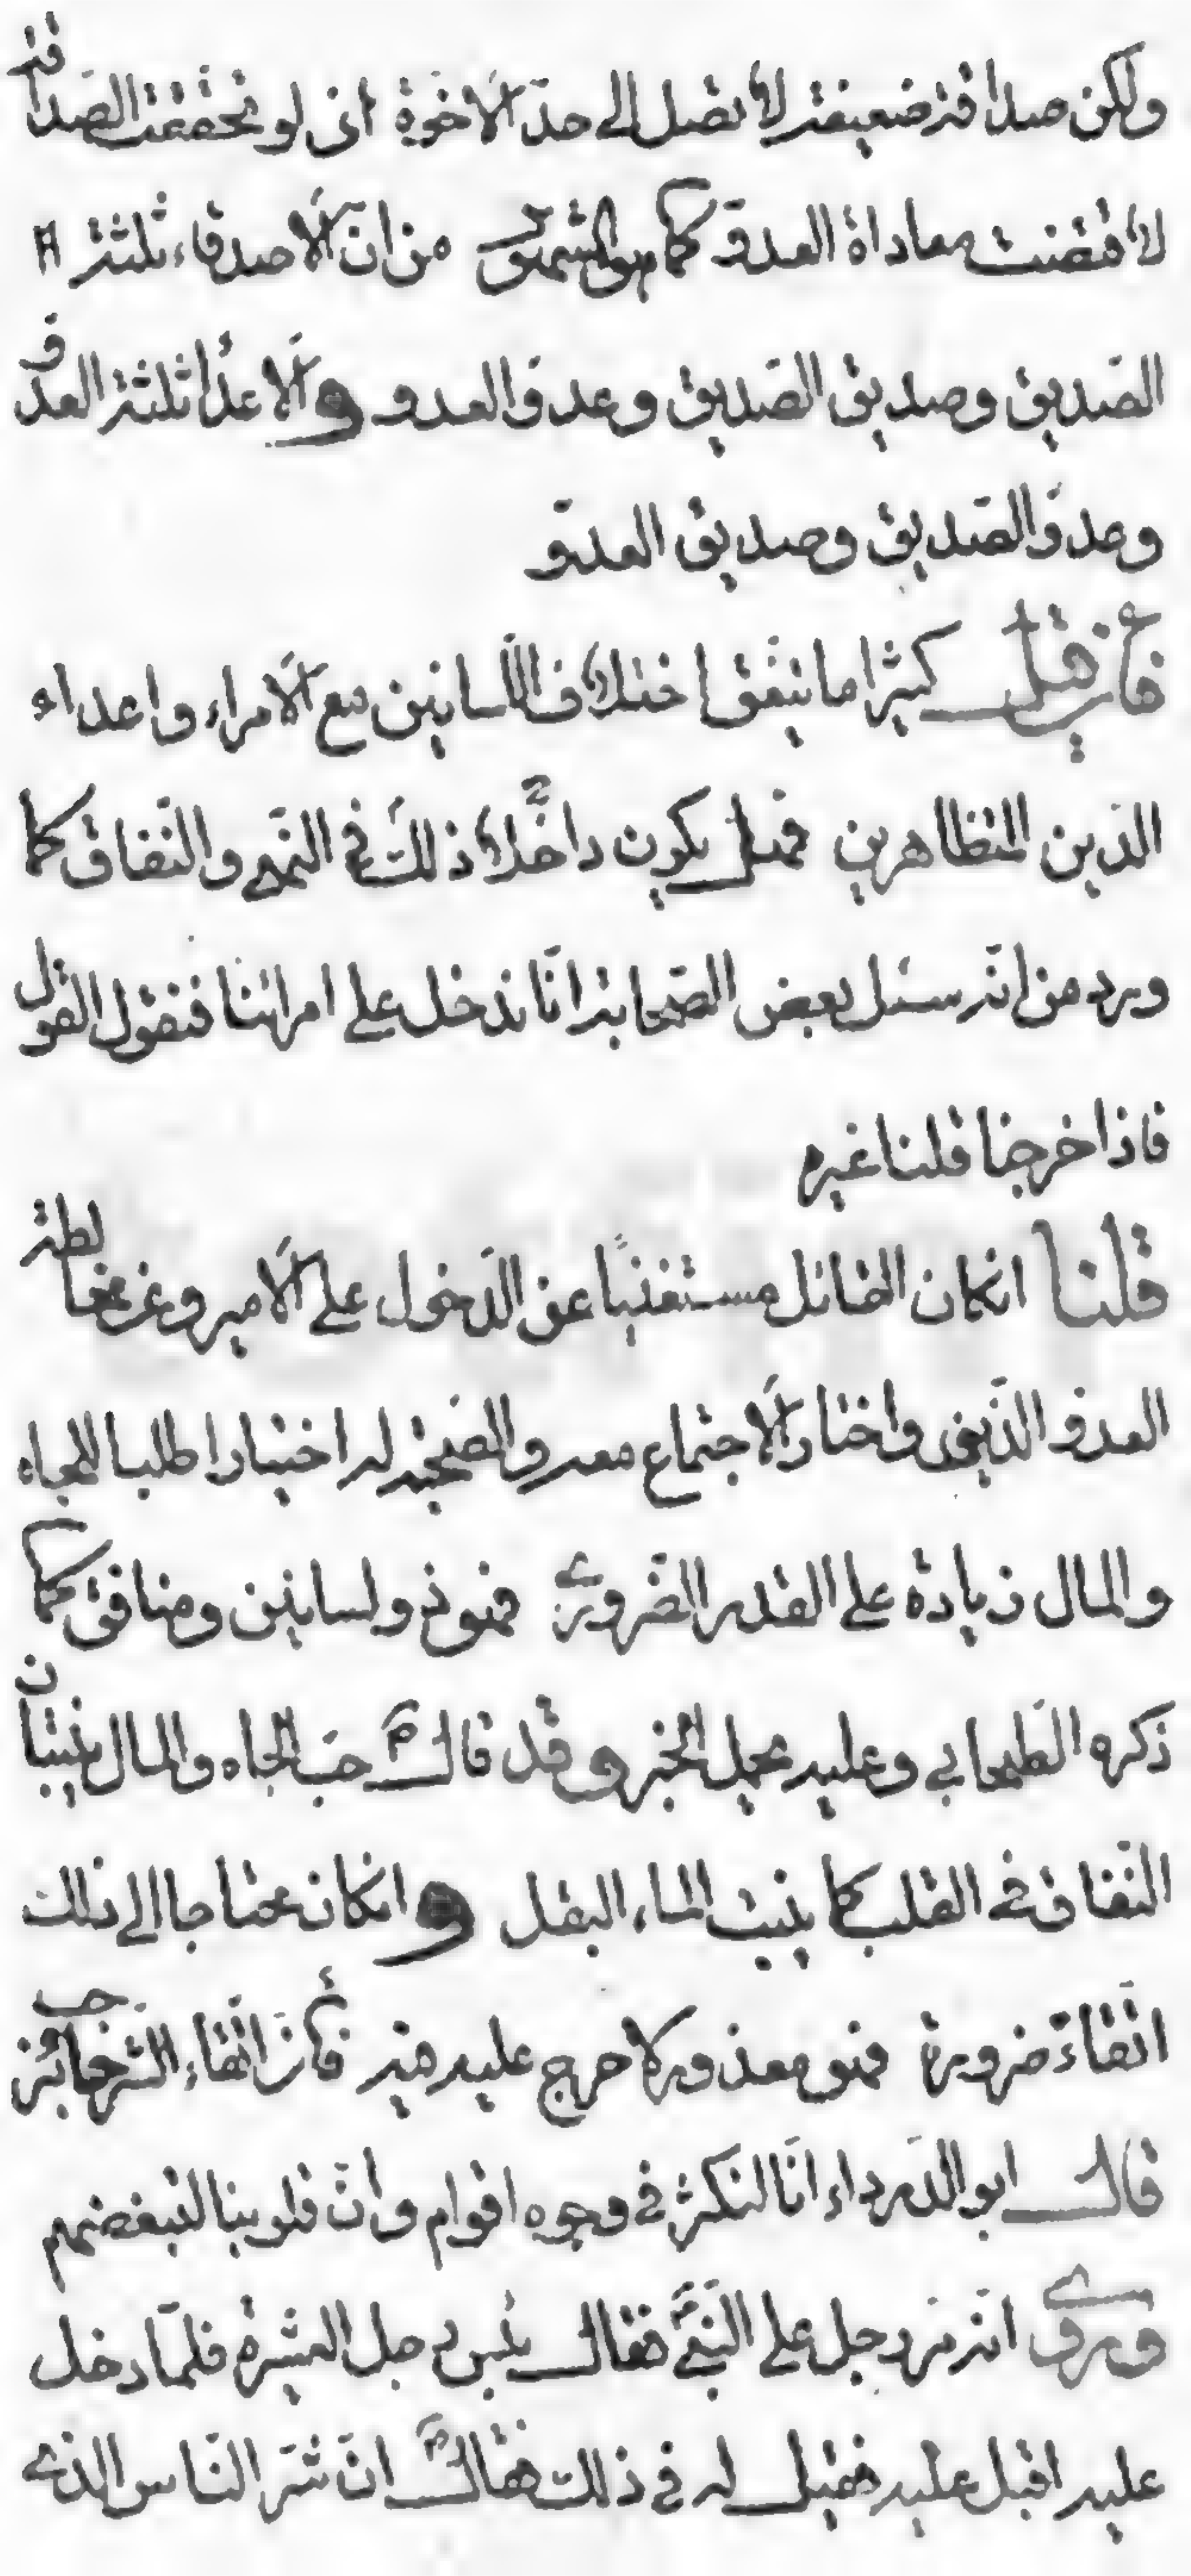 ولكن صداقة ضعيفة لا تصل الى حدّ الاخوة اذ لو تحققت الصداقة
لاقتضت معاداة العدوّ كما هو المشهور من انّ الاصدقاء ثلثة
الصّديق وصديق الصّديق وعدوّ العدو والاعداء ثلثة العدوّ
وعدوّ الصّديق وصديق العدوّ
فان قيل كثيرا ما يتفق اختلاف اللّسانين مع الامراء واعداء
الدّين المتظاهرين فهل يكون داخلا ذلك في النّهي والنّفاق كما
ورد من انّه سئل بعض الصّحابة انّا ندخل على امرائنا فنقول القول
فاذا خرجنا قلنا غيره
قلنا ان كان القائل مستغنيًا عن الدّخول على الامير وعن مخالطة
العدوّ الدّيني واختار الاجتماع معه والصّحبة له اختيارا طلبا للجاه
والمال زيادة على القدر الضّروري فهو ذو لسانين ومنافق كما
ذكره الصّحابي وعليه يحمل الخبر وقد قال ص حبّ الجاه والمال ينبتان
النّفاق في القلب كما ينبت الماء البقل وان كان محتاجا الى ذلك
اتّقاءً ضرورة فهو معذور لا حرج عليه فيه فأنّ اتّقاء الشّرّ جائز
قال ابو الدّرداء انّا لنكشر في وجوه اقوام وانّ قلوبنا لتبغضهم
وروي انّه مرّ رجل على النّبيّ ص فقال بئس رجل العشيرة فلمّا دخل
عليه اقبل عليه فقيل له في ذلك فقال ص انّ شرّ النّاس الذي